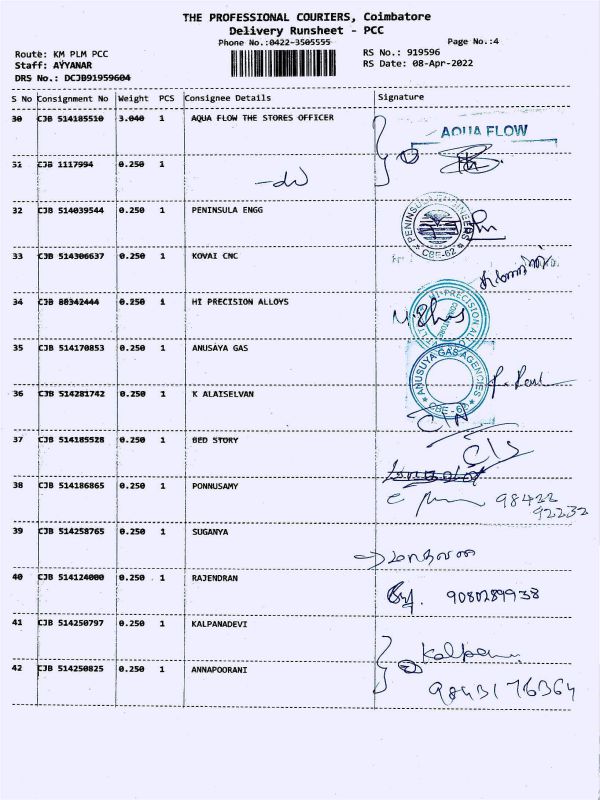 THE PROFESSIONAL COURIERS, Coimbatore
Delivery Runsheet - PCC
Phone No.:0422-3505555
Page No.:4
Route: KM PLM PCC
RS No.: 919596
Staff: AYYANAR
RS Date: 08-Apr-2022
DRS No.: DCJB91959604
S No Consignment No Weight PCS Consignee Details Signature
30 CJB 514185510 3.040 1 AQUA FLOW THE STORES OFFICER
AQUA FLOW
31 CJB 1117994 0.250 1
32 CJB 514039544 0.250 1 PENINSULA ENGG
PENINSULA ENGINEERS
CBE-62
33 CJB 514306637 0.250 1 KOVAI CNC
34 CJB 88342444 0.250 1 HI PRECISION ALLOYS
HI-PRECISION ALLO
35 CJB 514170853 0.250 1 ANUSAYA GAS
ANUSUYA GAS AGENCIES
36 CJB 514281742 0.250 1 K ALAISELVAN
37 CJB 514185528 0.250 1 BED STORY
38 CJB 514186865 0.250 1 PONNUSAMY
98422
92232
39 CJB 514258765 0.250 1 SUGANYA
40 CJB 514124000 0.250 1 RAJENDRAN
9080289938
41 CJB 514250797 0.250 1 KALPANADEVI
42 CJB 514250825 0.250 1 ANNAPOORANI
9843176364